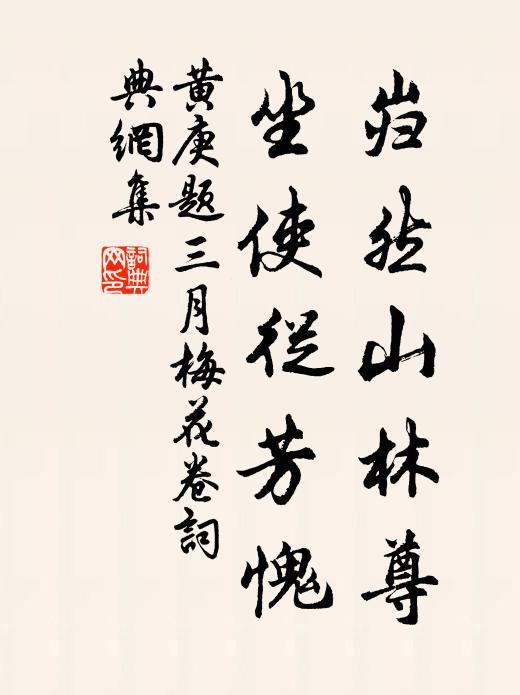 岿然山林尊
坐使從芳愧
黄庚题三月梅花卷詞
典網集
詞典網印